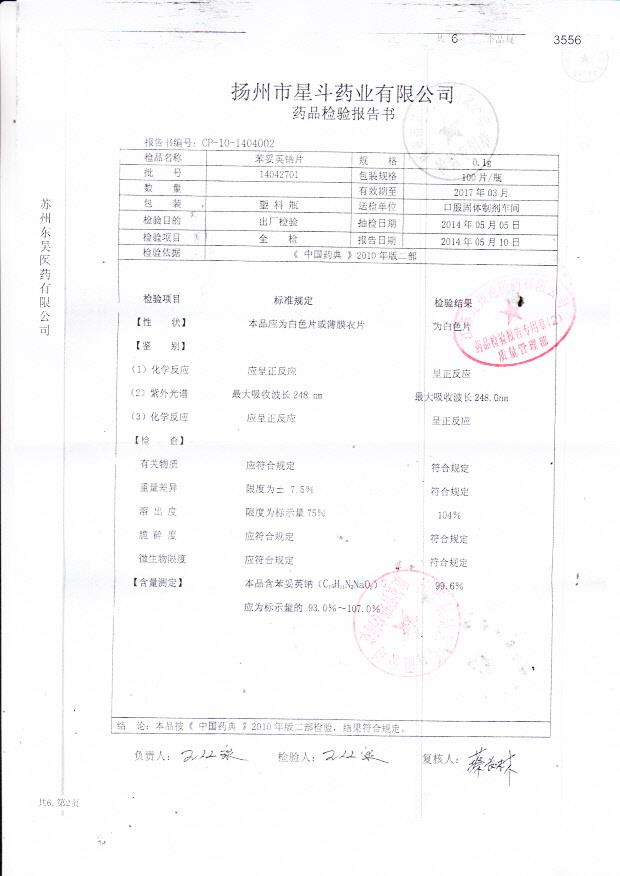 共 6 3556
扬州市星斗药业有限公司
药品检验报告书
报告书编号: CP-10-1404002
检品名称 苯妥英钠片 规 格 0.1g
批 号 14042701 包装规格 100片/瓶
数 量 有效期至 2017年03月
包 装 塑料瓶 送检单位 口服固体制剂车间
检验目的 出厂检验 抽检日期 2014年05月05日
检验项目 全 检 报告日期 2014年05月10日
检验依据 《中国药典》2010年版二部
检验项目 标准规定 检验结果
【性 状】 本品应为白色片或薄膜衣片 为白色片
【鉴 别】
(1) 化学反应 应呈正反应 呈正反应
(2) 紫外光谱 最大吸收波长 248 nm 最大吸收波长 248.0nm
(3) 化学反应 应呈正反应 呈正反应
【检 查】
有关物质 应符合规定 符合规定
重量差异 限度为± 7.5% 符合规定
溶出度 限度为标示量75% 104%
脆碎度 应符合规定 符合规定
微生物限度 应符合规定 符合规定
【含量测定】 本品含苯妥英钠 (C₁₅H₁₁N₂NaO₂) 99.6%
应为标示量的 93.0%~107.0%
结 论: 本品按《中国药典》2010年版二部检验, 结果符合规定。
负责人: 检验人: 复核人:
苏州东吴医药有限公司
共6, 第2页
药品检验报告专用章(2)
质量管理部